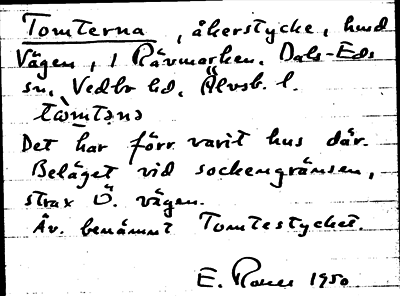 Tomterna, åkerstycke, hmd
Vägen, i Rävmarken, Dals-Eds
sn, Vedbo hd, Älvsb. l.
tɷ̀mtəɳə
Det har förr varit hus där.
Beläget vid sockengränsen,
strax Ö. vägen.
Äv. benämnt Tomtestycket.
E. 1950